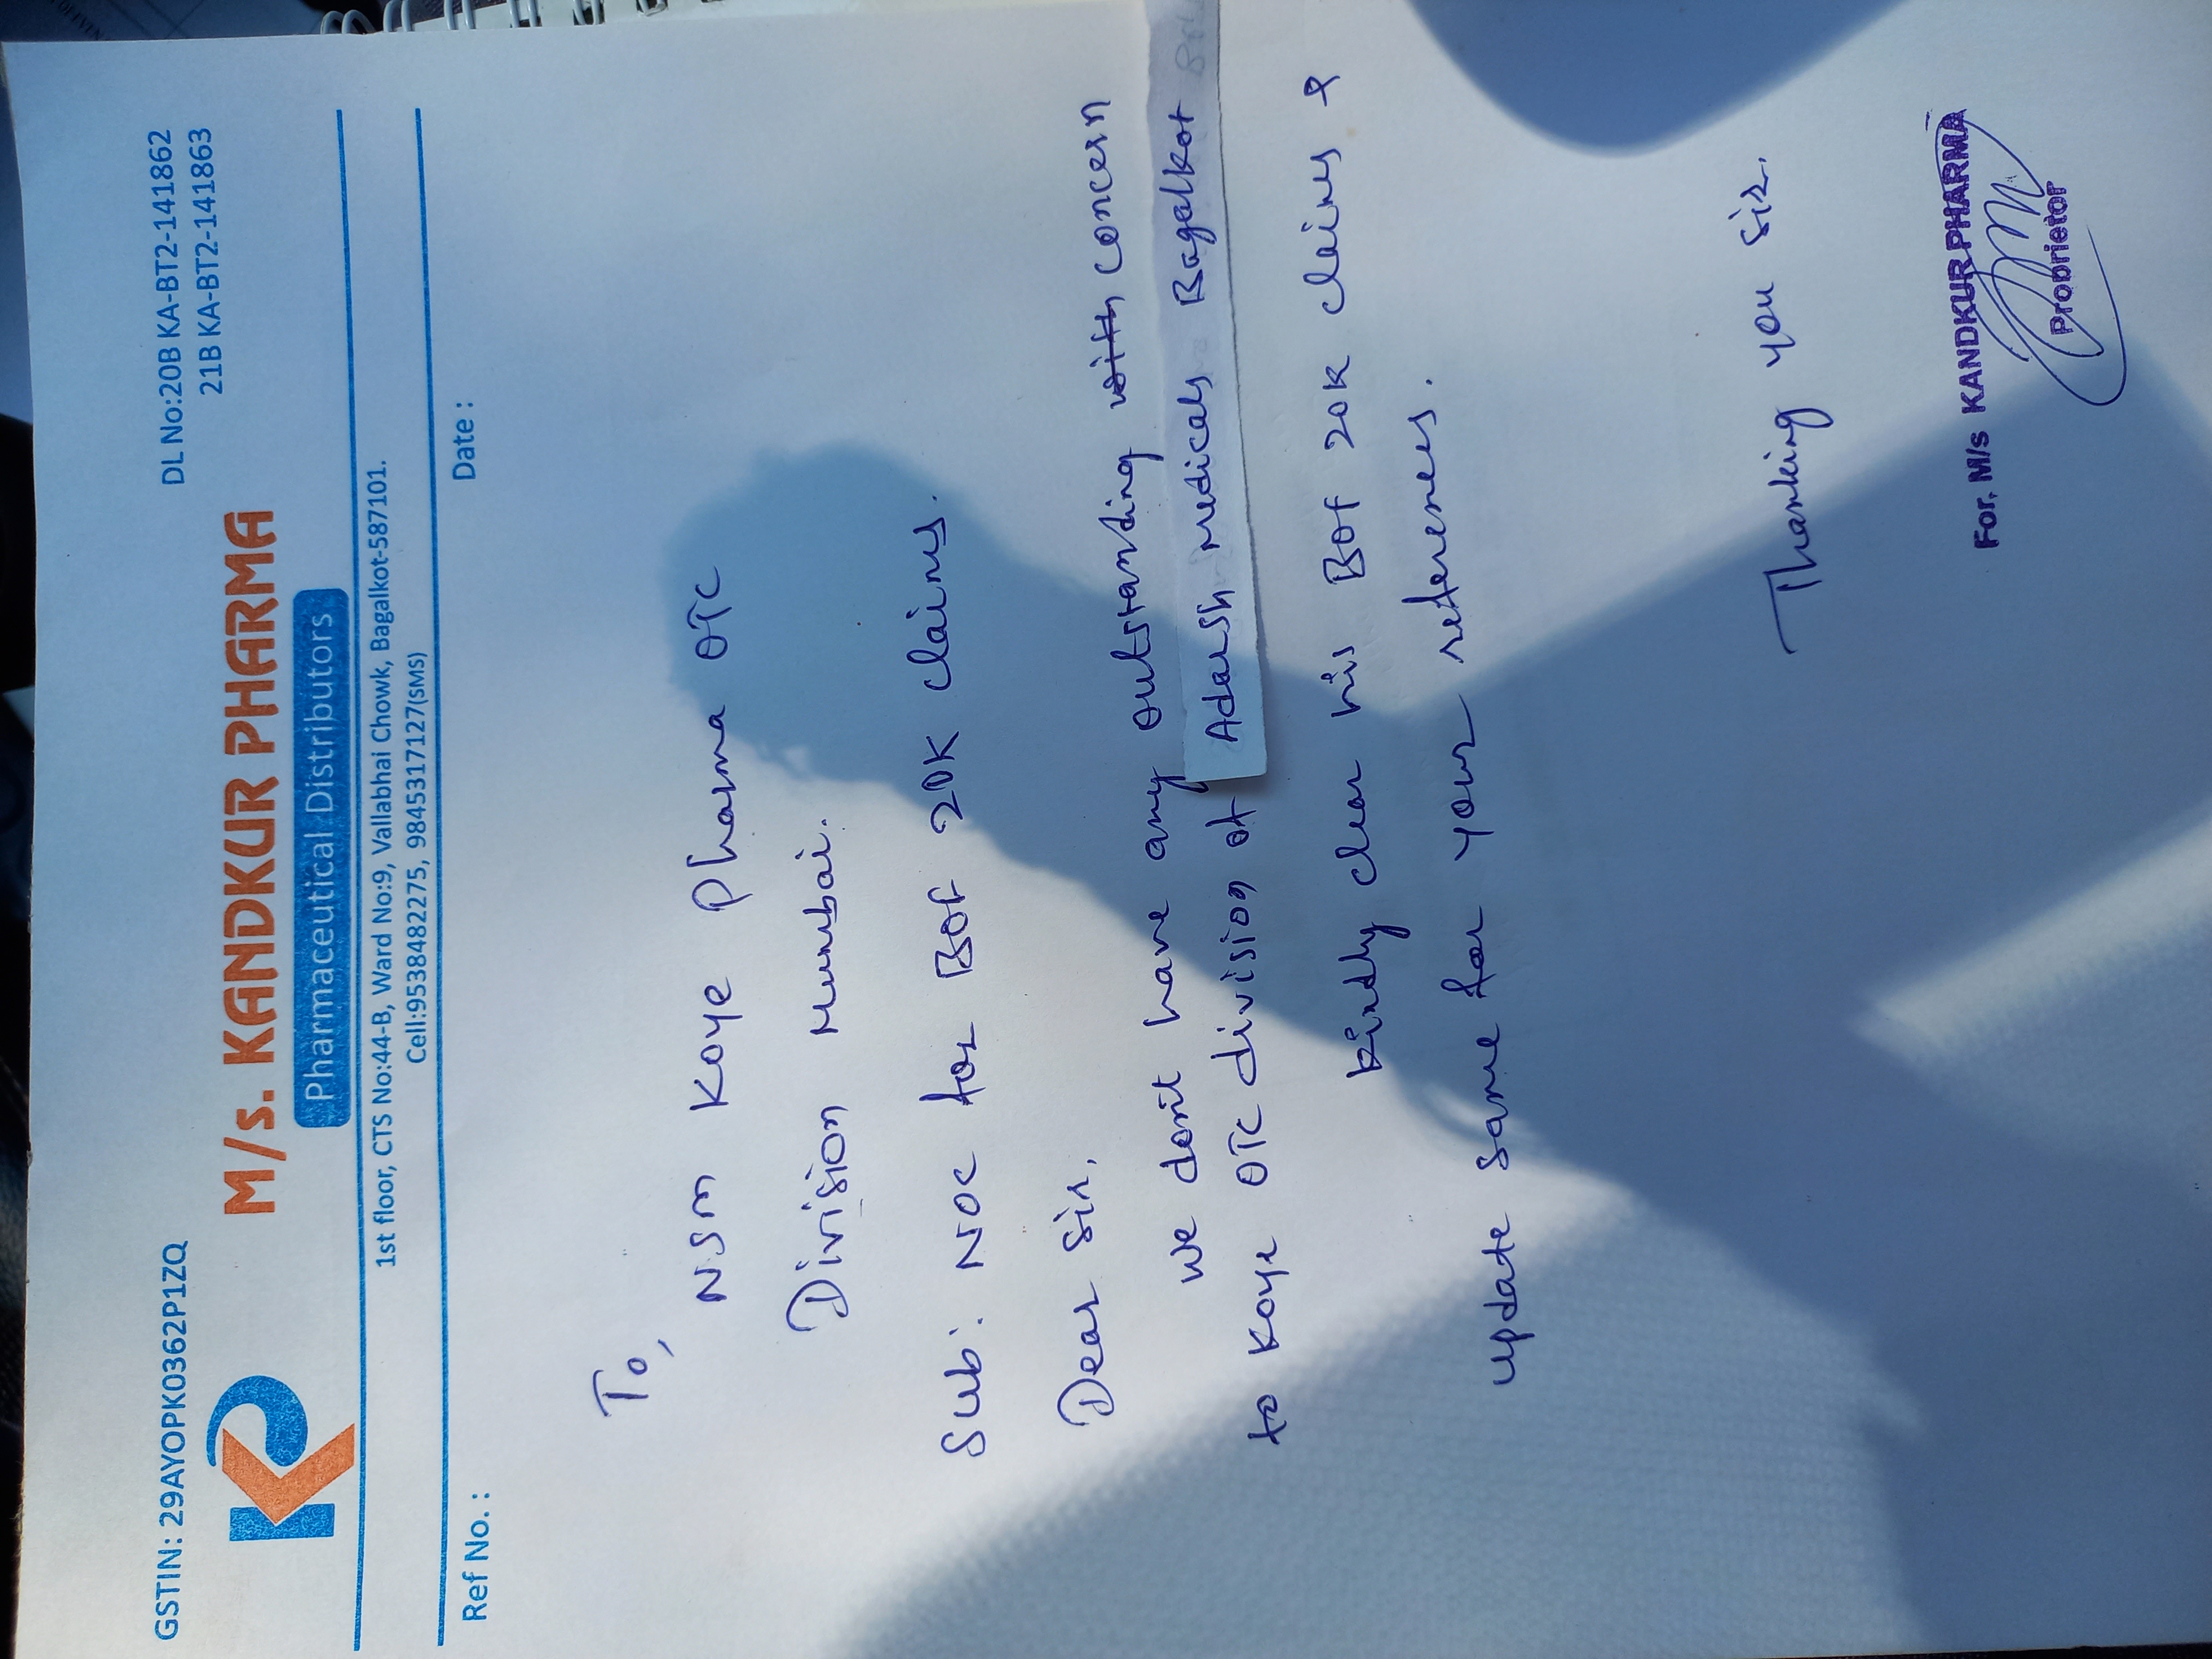 GSTIN: 29AYOPK0362P1ZQ
DL No:20B KA-BT2-141862
21B KA-BT2-141863
M/s. KANDKUR PHARMA
Pharmaceutical Distributors
1st floor, CTS No:44-B, Ward No:9, Vallabhai Chowk, Bagalkot-587101.
Cell:9538482275, 9845317127(SMS)
Ref No. :
Date :
To,
NSM Koye Pharma OTC
Division Mumbai.
Sub: NOC for BOF 20K Claims.
Dear Sir,
We don't have any outstanding with concern
to Koye OTC division of Adarsh Medicals Bagalkot
kindly clear his BOF 20K claims &
update same for your references.
Thanking you sir.
For, M/s KANDKUR PHARMA
Proprietor